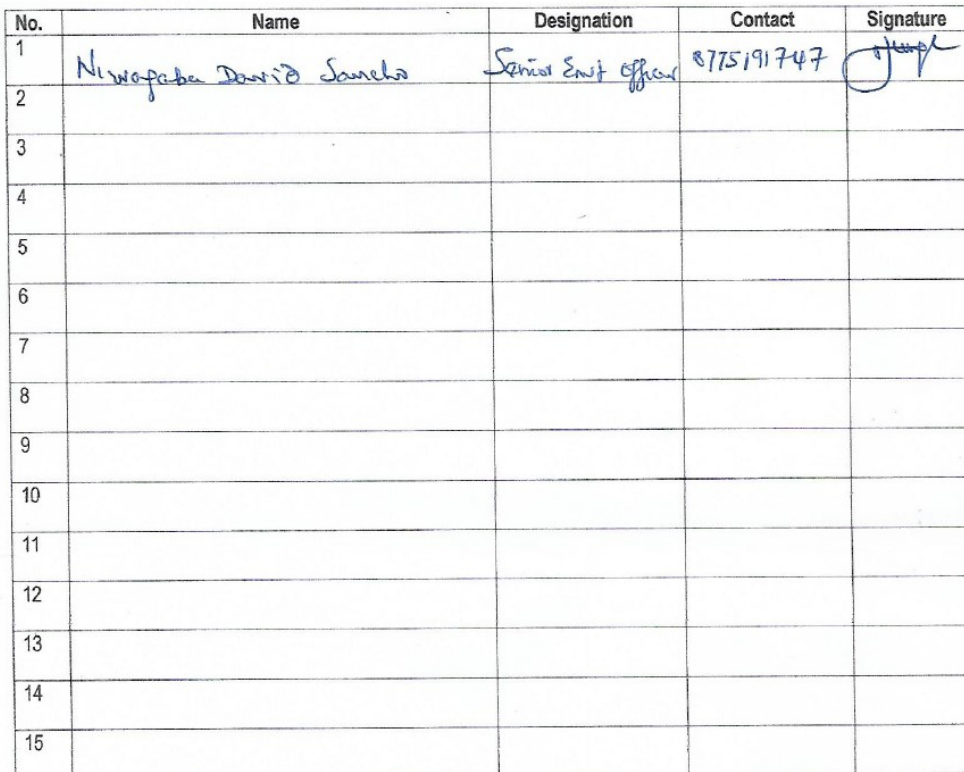 No. Name Designation Contact Signature
1 Niwagaba David Sancho Senior Envt Officer 0775191747
2
3
4
5
6
7
8
9
10
11
12
13
14
15